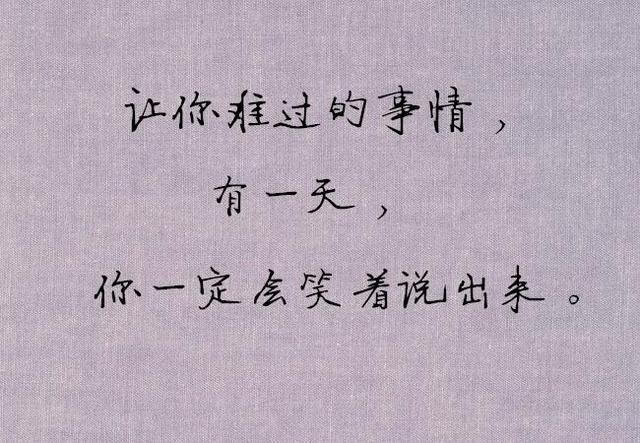 让你难过的事情，
有一天，
你一定会笑着说出来。